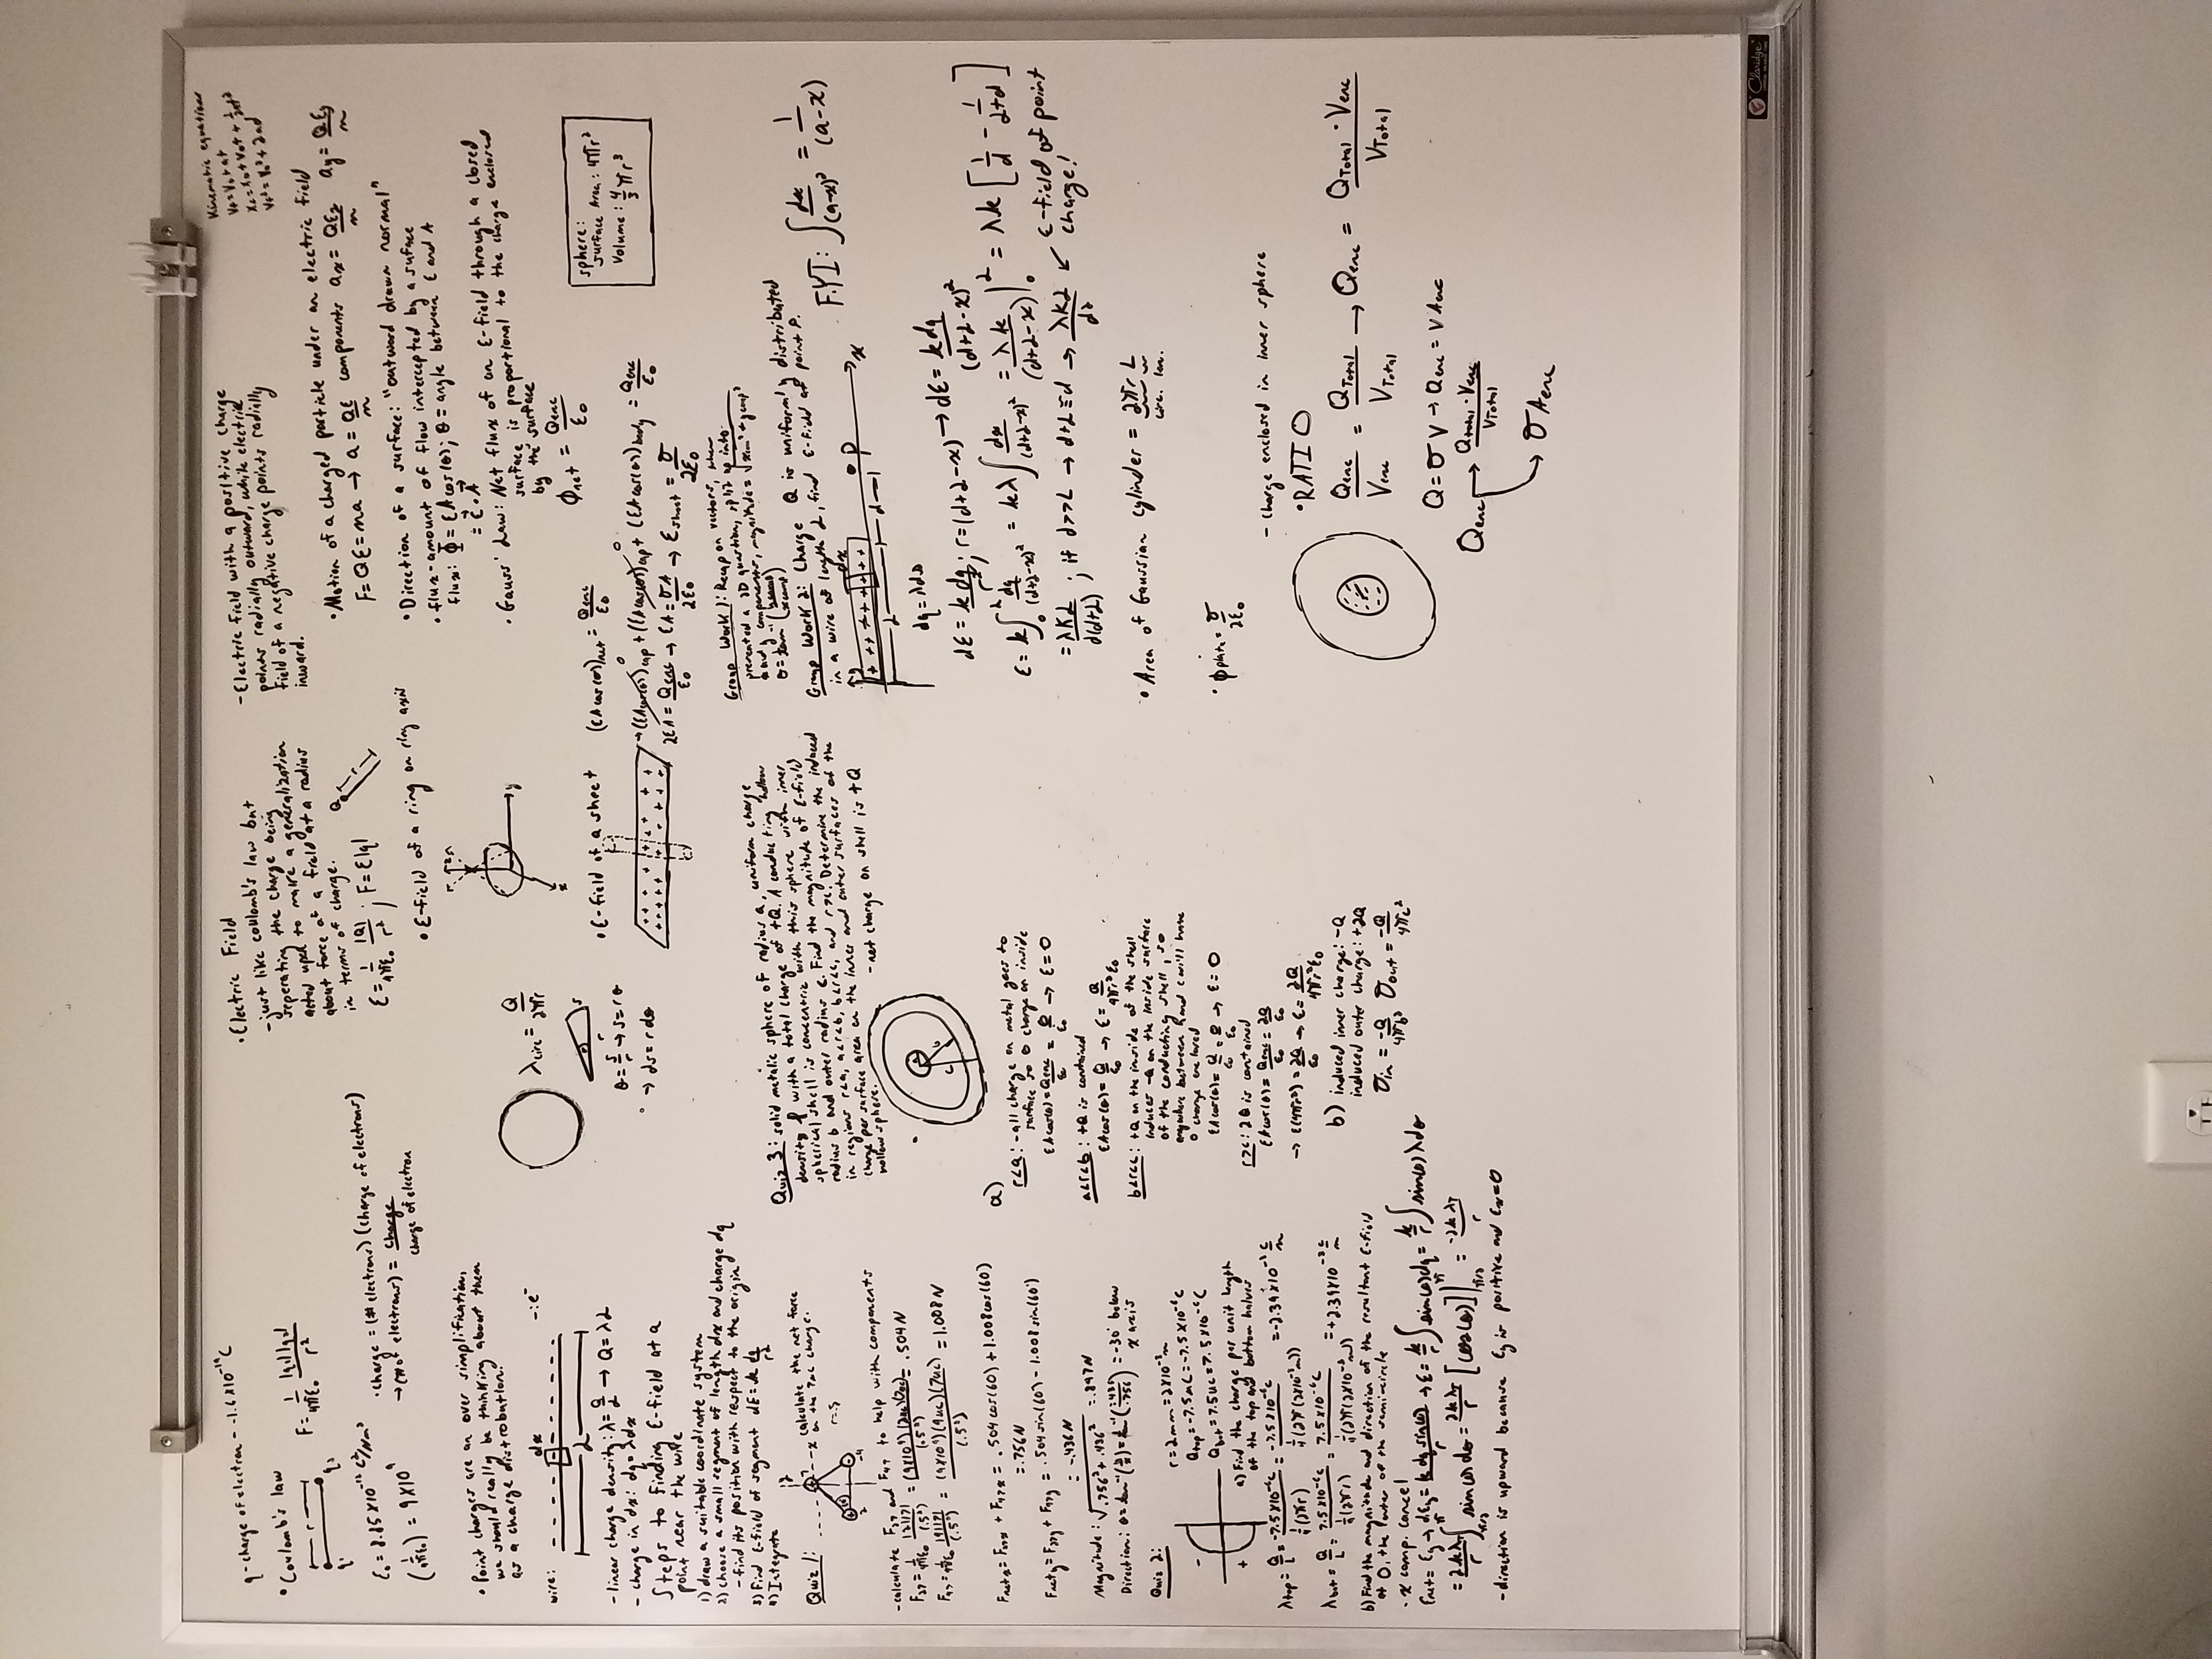 q - charge of electron - -1.6x10⁻¹⁹C
• Coulomb's law
r
q₁ q₂
F = 1/4πε₀ |q₁||q₂|/r²
ε₀ = 8.85x10⁻¹² C²/Nm²
(1/4πε₀) = 9x10⁹
• charge = (# electrons) (charge of electrons)
→ (# of electrons) = charge/charge of electron
• Point charges are an over simplification,
we should really be thinking about them
as a charge distrobution.
dx
wire: - - - - - - - - - -:e⁻
L
- linear charge density: λ = Q/L → Q = λL
- charge in dx: dq = λdx
Steps to finding E-field at a
point near the wire
1) draw a suitable coordinate system
2) choose a small segment of length dx and charge dq
- find its position with respect to the origin
3) Find E-field of segment dE = k dq/r²
4) Integrate
Quiz 1:
calculate the net force
on the 7uc charge.
r=.5
7
x
2 -4
- calculate F₂₇ and F₄₇ to help with components
F₂₇ = 1/4πε₀ |2||7|/(.5²) = (9x10⁹)(2uc)(7uc)/(.5²) = .504 N
F₄₇ = 1/4πε₀ |4||7|/(.5²) = (9x10⁹)(4uc)(7uc)/(.5²) = 1.008 N
Fnetx = F₂₇x + F₄₇x = .504cos(60) + 1.008cos(60)
= .756N
Fnety = F₂₇y + F₄₇y = .504sin(60) - 1.008sin(60)
= -.436N
Magnitude: √.756² + .436² = .897N
Direction: θ = tan⁻¹(y/x) = tan⁻¹(-.436/.756) = -30° below
x axis
Quiz 2:
- +
r = 2mm = 2x10⁻³m
Qtop = -7.5uC = -7.5x10⁻⁶C
Qbot = 7.5uc = 7.5x10⁻⁶C
a) Find the charge per unit length
of the top and bottom halves
λtop = Q/L = -7.5x10⁻⁶c/¼(2πr) = -7.5x10⁻⁶c/¼(2π(2x10⁻³m)) = -2.39x10⁻³ c/m
λbot = Q/L = 7.5x10⁻⁶c/¼(2πr) = 7.5x10⁻⁶c/¼(2π(2x10⁻³m)) = +2.39x10⁻³ c/m
b) Find the magnitude and direction of the resultant E-field
at O, the center of the semi-circle
- x comp. cancel
Enet = Ey → dEy = k dq sin(θ)/r → E = k/r ∫ sin(θ)dq = k/r ∫ sin(θ) λdθ
= 2kλT/r ∫ sin(θ) dθ = 2kλT/r [cos(θ)]|π π/2 = -2kλT/r
- direction is upward because Ey is positive and Ex=0
• Electric Field
- just like coulomb's law but
seperating the charge being
acted upon to make a generalization
about force of a field at a radius
in terms of charge.
E = 1/4πε₀ |Q|/r² ; F = E|q|
Q r
• E-field of a ring on ring axis
y
x
λcirc = Q/2πr
θ r s
θ = s/r → s = rθ
→ ds = r dθ
• E-field of a sheet
(EAcos(θ))net = Qenc/ε₀
→ (EAcos(θ))cap + (EAcos(θ))cap + (EAcos(θ))body 0 = Qenc/ε₀
2EA = Qenc/ε₀ → EA = σA/2ε₀ → Esheet = σ/2ε₀
Quiz 3: solid metalic sphere of radius a, uniform charge
density ρ with a total charge of +Q. A conducting hollow
spherical shell is concentric with this sphere with inner
radius b and outer radius c. Find the magnitude of E-field
in regions r<a, a<r<b, b<r<c, and r>c. Determine the induced
charge per surface area on the inner and outer surfaces of the
hollow sphere.
- net charge on shell is +Q
a b c
a)
r<a: - all charge on metal goes to
surface so 0 charge on inside
EAcos(θ) = Qenc/ε₀ = 0/ε₀ → E = 0
a<r<b: +Q is contained
EAcos(θ) = Q/ε₀ → E = Q/4πr²ε₀
b<r<c: +Q on the inside of the shell
induces -Q on the inside surface
of the conducting shell, so
anywhere between b and c will have
0 charge enclosed
EAcos(θ) = Q/ε₀ = 0/ε₀ → E = 0
r>c: 2Q is contained
EAcos(θ) = Qenc/ε₀ = 2Q/ε₀
→ E(4πr²) = 2Q/ε₀ → E = 2Q/4πr²ε₀
b) induced inner charge: -Q
induced outer charge: +2Q
σin = -Q/4πb² σout = -Q/4πc²
- Electric field with a positive charge
points radially outward, while electric
field of a negative charge points radially
inward.
Kinematic equations
Vf = V₀ + at
Xf = X₀ + V₀t + ½at²
Vf² = V₀² + 2ad
• Motion of a charged particle under an electric field
F = QE = ma → a = QE/m components ax = QEx/m ay = QEy/m
• Direction of a surface: "outward drawn normal"
• flux - amount of flow intercepted by a suface
flux: Φ = EAcos(θ); θ = angle between E and A
= E⃗ • A⃗
• Gauss' Law: Net flux of an E-field through a closed
surface is proportional to the charge enclosed
by the surface
Φnet = Qenc/ε₀
sphere:
Surface Area: 4πr²
Volume: 4/3 πr³
Group Work 1: Recap on vectors, when
presented a 2D question, split up into
x and y components, magnitude = √xcom² + ycomp²
θ = tan⁻¹(ycomp/xcomp)
Group Work 2: Charge Q is uniformly distributed
in a wire of length L, find E-field at point P.
F.Y.I: ∫ dx/(a-x)² = 1/(a-x)
dx
y + + + + + + + • P x
L d
dq = λdx
dE = k dq/r² ; r = (d+L-x) → dE = k dq/(d+L-x)²
E = k ∫ dq/(d+L-x)² = kλ ∫ dx/(d+L-x)² = λk/(d+L-x) |L 0 = λk [1/d - 1/L+d]
= λKL/d(d+L) ; if d>>L → d+L≡d → λKL/d² ↙ E-field of point
charge!
• Area of Gaussian cylinder = 2πr L
circ. len.
• Φplate = σ/2ε₀
- Charge enclosed in inner sphere
• RATIO
Qenc/Venc = QTotal/VTotal → Qenc = QTotal · Venc/VTotal
Q = σV → Qenc = VAenc
Qenc → Qtotal · Venc/VTotal
→ σAenc
Claridge